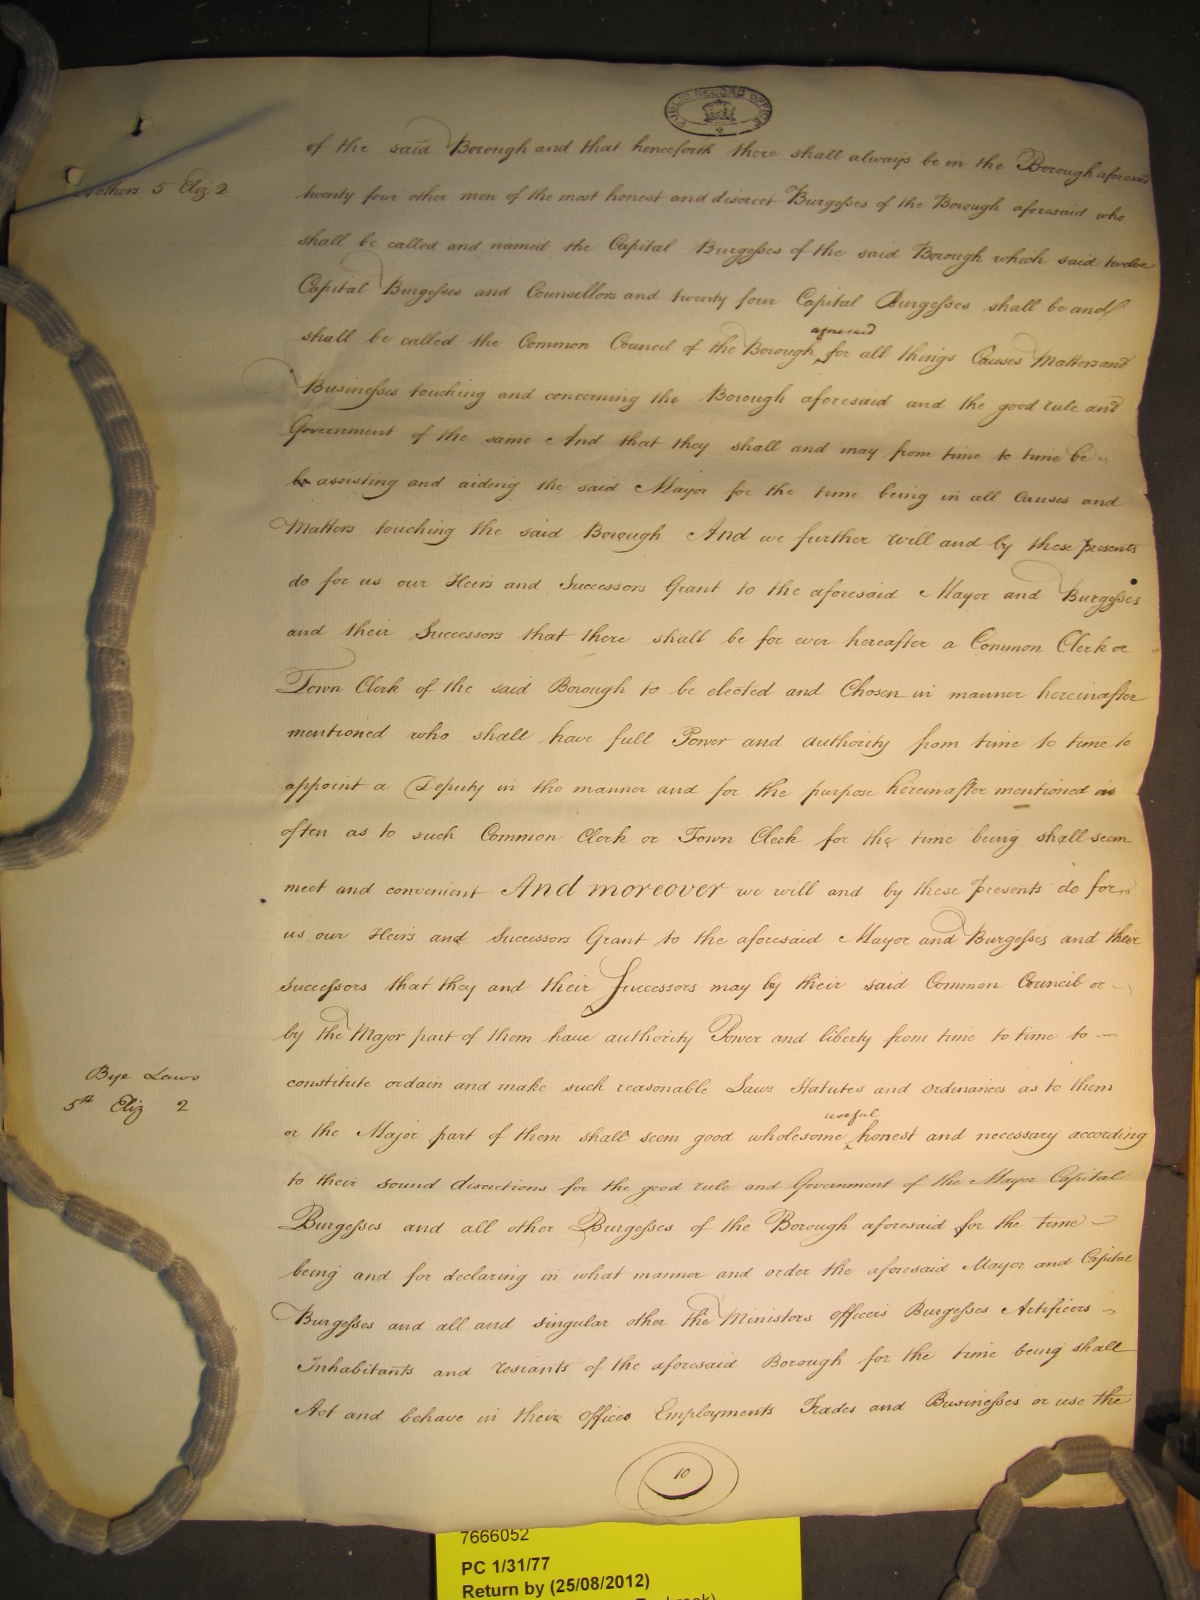 PUBLIC RECORD OFFICE
of the said Borough and that henceforth there shall always be in the Borough aforesaid
5 Eliz: 2
twenty four other men of the most honest and discreet Burgesses of the Borough aforesaid who
shall be called and named the Capital Burgesses of the said Borough which said twelve
Capital Burgesses and Counsellors and twenty four Capital Burgesses shall be and
aforesaid
shall be called the Common Council of the Borough for all things Causes Matters and
Businesses touching and concerning the Borough aforesaid and the good rule and
Government of the same And that they shall and may from time to time be
be assisting and aiding the said Mayor for the time being in all causes and
Matters touching the said Borough And we further will and by these presents
do for us our Heirs and Successors Grant to the aforesaid Mayor and Burgesses
and their Successors that there shall be for ever hereafter a Common Clerk or
Town Clerk of the said Borough to be elected and Chosen in manner hereinafter
mentioned who shall have full Power and authority from time to time to
appoint a Deputy in the manner and for the purpose hereinafter mentioned as
often as to such Common Clerk or Town Clerk for the time being shall seem
meet and convenient And moreover we will and by these presents do for
us our Heirs and Successors Grant to the aforesaid Mayor and Burgesses and their
successors that they and their Successors may by their said Common Council or
by the Major part of them have authority Power and liberty from time to time to
Bye Laws
5th Eliz 2
constitute ordain and make such reasonable Laws Statutes and ordinances as to them
useful
or the Major part of them shall seem good wholesome honest and necessary according
to their sound discretions for the good rule and Government of the Mayor Capital
Burgesses and all other Burgesses of the Borough aforesaid for the time
being and for declaring in what manner and order the aforesaid Mayor and Capital
Burgesses and all and singular other the Ministers officers Burgesses Artificers
Inhabitants and resiants of the aforesaid Borough for the time being shall
Act and behave in their offices Employments Trades and Businesses or use the
10
7666052
PC 1/31/77
Return by (25/08/2012)